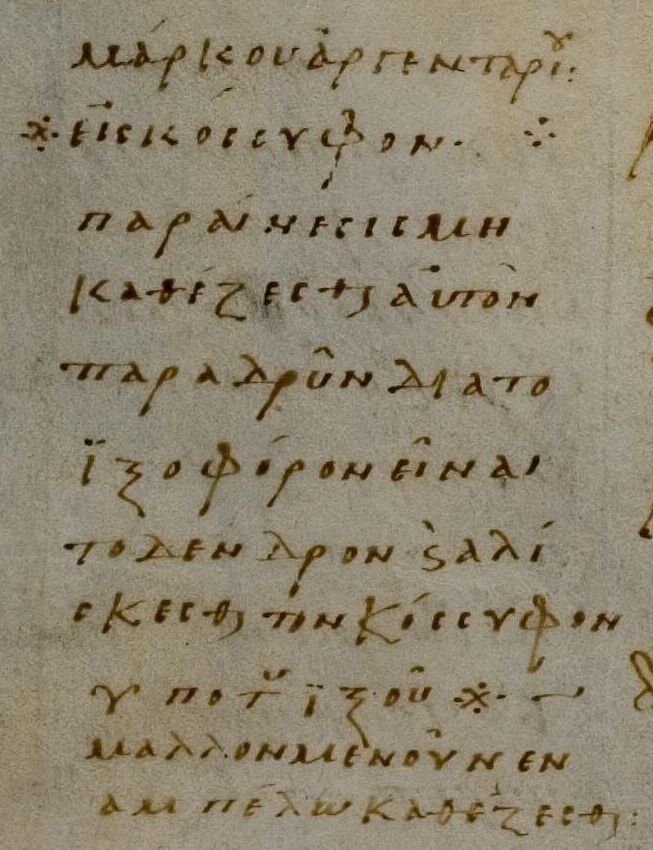 μάρκου ἀργενταρίου:
※ εἰς κόσσυφον· ⁘
παραίνεσις μὴ
καθέζεσθαι αὐτὸν
παρὰ δρῦν διὰ τὸ
ἰξοφόρον εἶναι
τὸ δένδρον καὶ ἁλί
σκεσθαι τὸν κόσσυφον
ὑπὸ τοῦ ἰξοῦ ※ –
μᾶλλον μενοῦν ἐν
ἀμπέλω καθέζεσθαι: